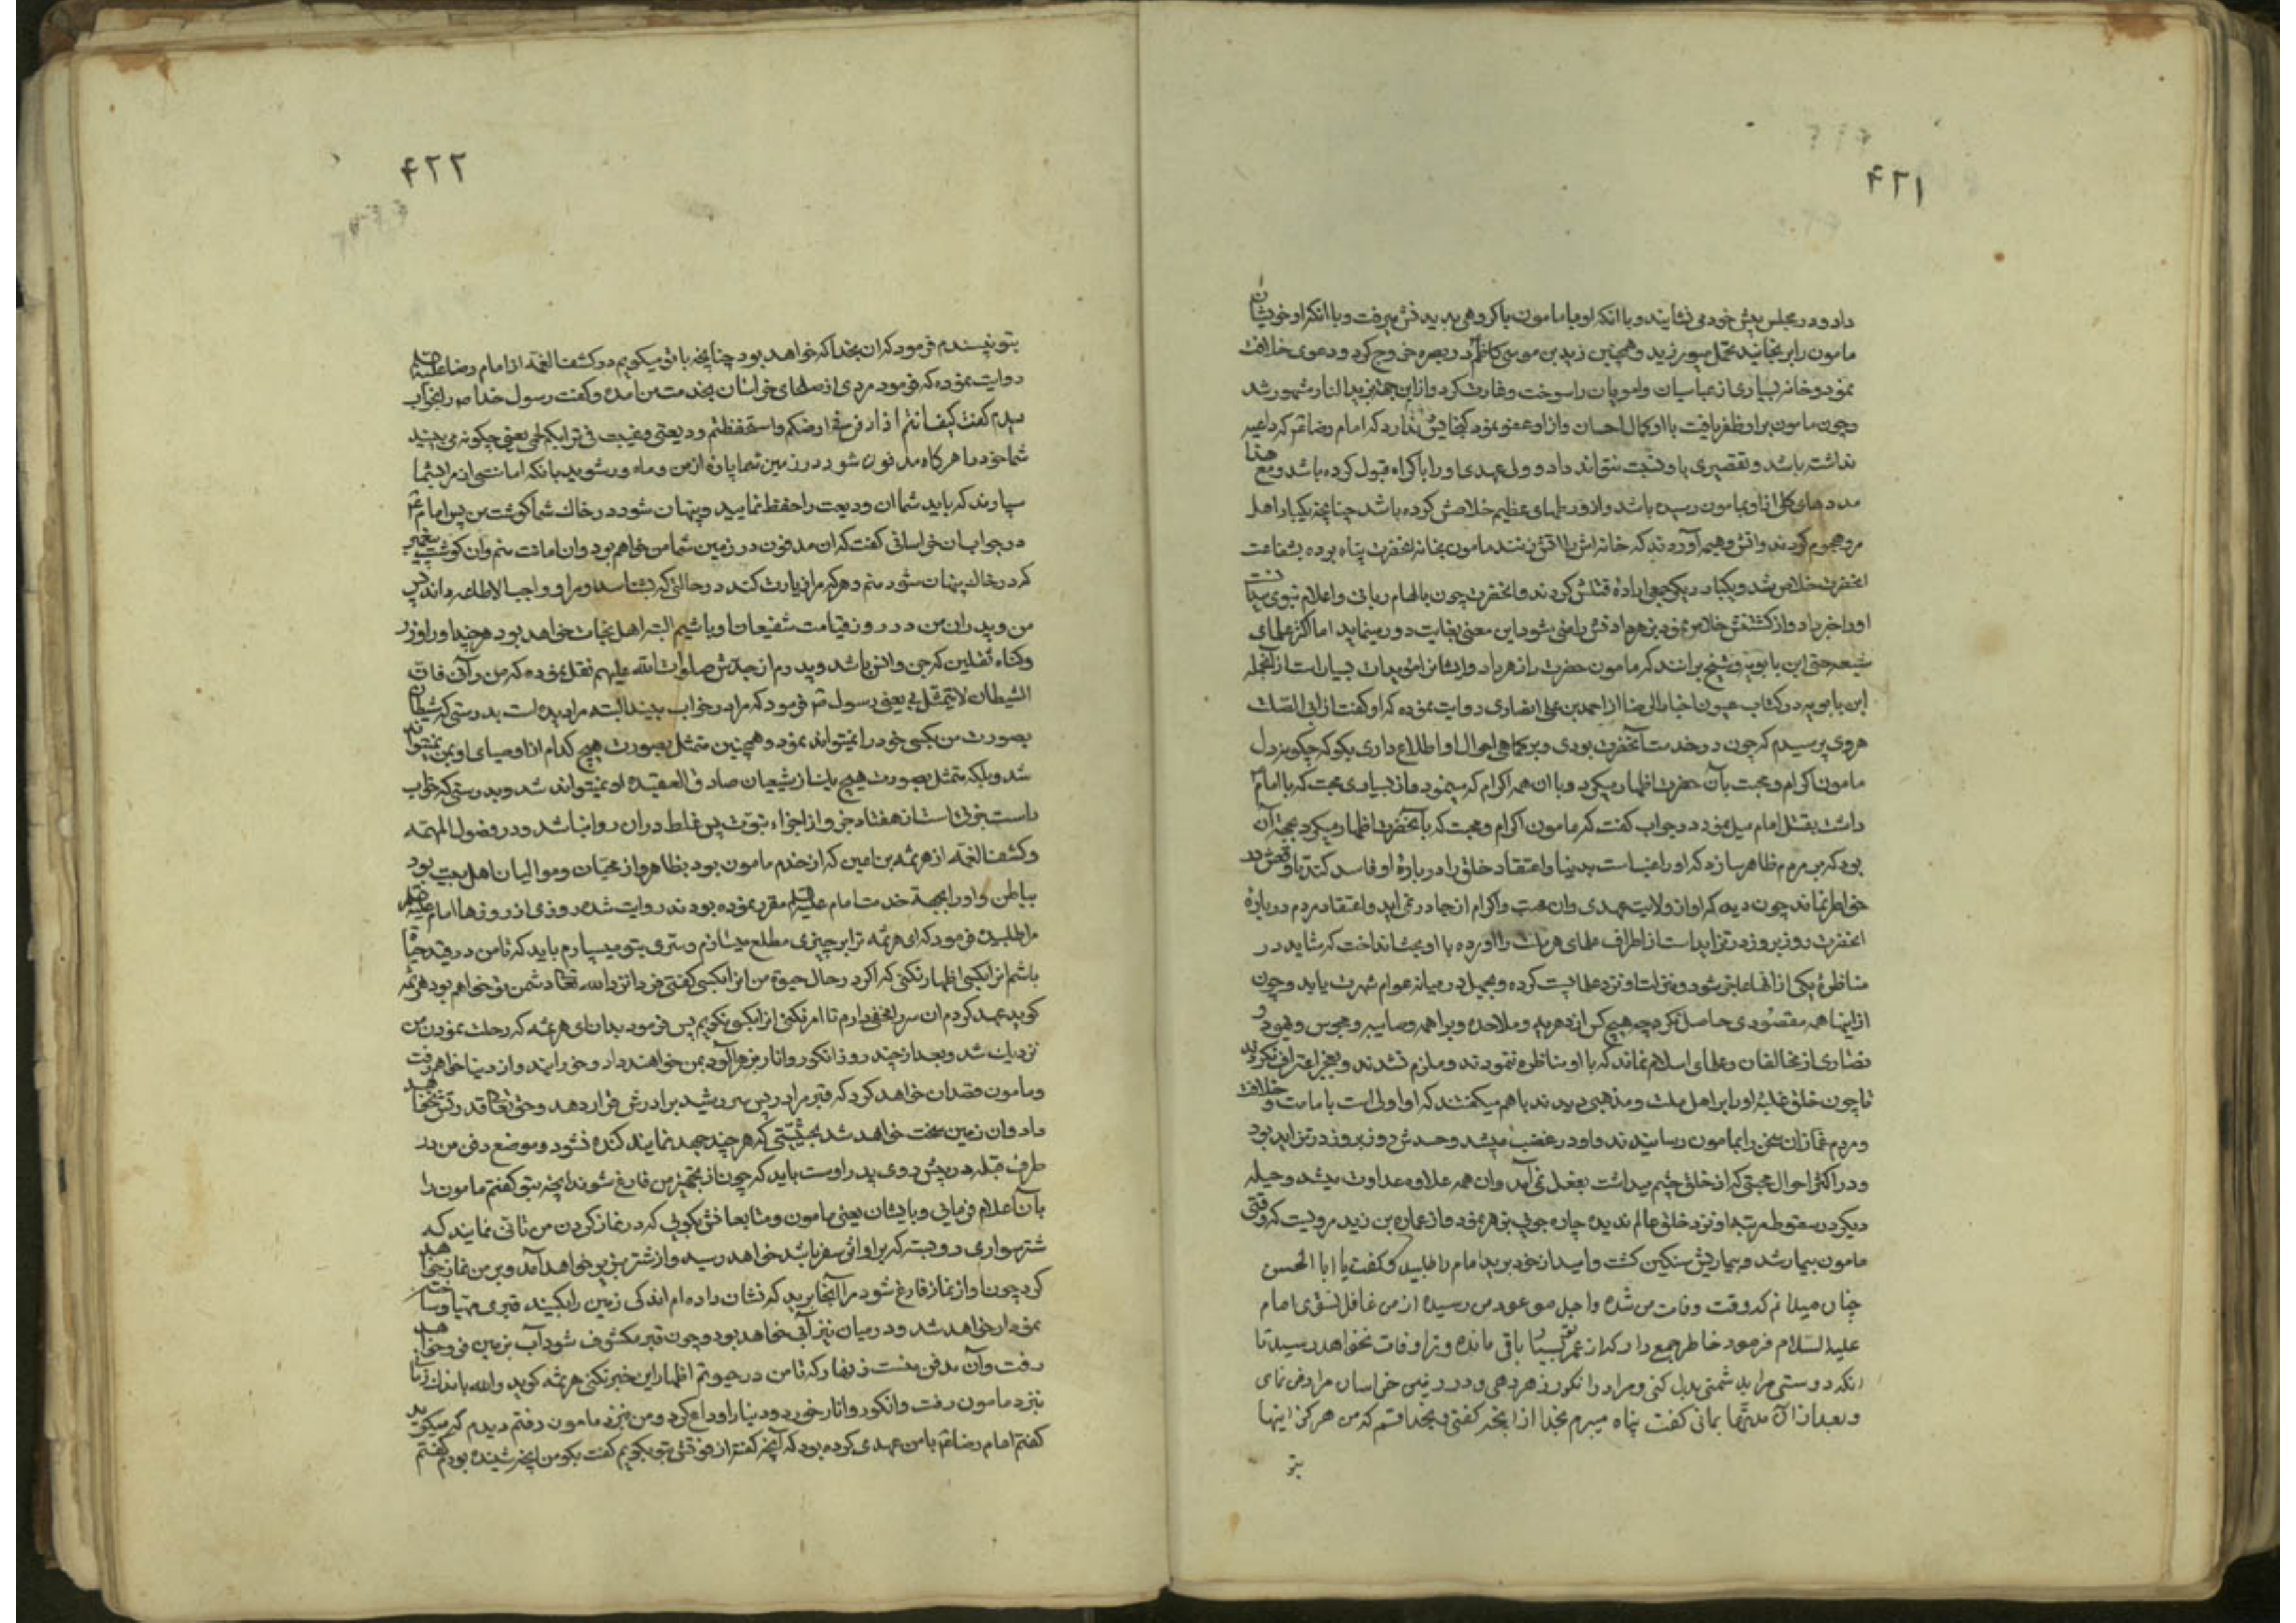 ۴۲۱
داد و در مجلس پیش خود می نشایند و با آنکه او با مامون با کروهی بد بد فش میرفت و با آنکه او خویشان
مامون را برنجانید تحمل میورزید و همچنین زید بن موسی کاظم در بصره خروج کرد و دعوی خلافت
نمود و خانه بسیاری از عباسیان و امویان را سوخت و غارت کرد و از این جهة بزید النار مشهور شد
و چون مامون بر او ظفر یافت با او کمال احسان و از او عفو نمود کنجایش ندارد که امام رضا ع که داعیه
نداشته باشد و تقصیری باو نسبت نتواند داد و ولی عهدی او را باکراه قبول کرده باشد و مع هذا
مددهای کلی از او بمامون رسیده باشد و از ورطهای عظیم خلاصش کرده باشد چنانچه یکبار اهل
مرو هجوم کردند و آتش و هیمه آوردند که خانه اش را آتش زنند مامون بخانه انحضرت پناه برده بشفاعت
انحضرت خلاص شد و یکبار دیگر جمعی اراده قتلش کردند و انحضرت چون بالهام ربانی و اعلام نبوی میدانست
او را خبر داد و از کشتنش خلاص نمود بزهر دادنش راضی شود این معنی بغایت دور مینماید اما اکثر علمای
شیعه حتی ابن بابویه و شیخ برانند که مامون حضرت را زهر داد و ایشانرا مؤیدات بسیار است از آنجمله
ابن بابویه در کتاب عیون اخبار الرضا از احمد بن علی انصاری روایت نموده که او کفت از ابی الصلت
هروی پرسیدم که چون در خدمت آنحضرت بودی و بر کماهی احوال او اطلاع داری بکو که چکونه دل
مامون با اکرام و محبت بآن حضرت اظهار میکرد و با ان همه اکرام که مینمود و از بسیاری محبت که با امام
داشت بقتل امام میل نمود در جواب کفت که مامون اکرام و محبت که بآنحضرت اظهار میکرد بجهة آن
بود که بر مردم ظاهر سازد که او راغبست بدنیا و اعتقاد خلق را در باره او فاسد کند تا وقعش در
خواطر نماند چون دید که او از ولایت عهدی وان محبت و اکرام از جا در نمی اید و اعتقاد مردم در باره
انحضرت روز بروز در تزاید است از اطراف علمای هر ملت را آورده با او بحث انداخت که شاید در
مناظره یکی از انها غالب شود و منزلت او نزد علما پست کرده و بجهل در میانه عوام شهرت یابد و چون
از اینها همه مقصودی حاصل نکرد چه هیچ کس از دهریه و ملاحده و براهمه و صابیه و مجوس و یهود و
نصاری از مخالفان و علمای اسلام نماند که با او مناظره ننمودند و ملزم نشدند و بعجز اعتراف نکردند
تا چون خلق غلبه او را بر اهل ملت و مذهبی دیدند با هم میکفتند که او اولی است بامامت و خلافت
و مردم غمازان سخن را بمامون رسانیدند و او در غضب میشد و حسدش روز بروز در تزاید بود
و در اکثر احوال محبتی که از خلق چشم میداشت بفعل نمی آمد وان همه علاوه عداوت میشد و حیله
دیکر در سقوط مرتبه او نزد خلق عالم ندیده چاره جوئی بزهر نمود و از عماره بن زید مرویست که وقتی
مامون بیمار شد و بیماریش سنکین کشت و امید از خود برید امام را طلبید و کفت یا ابا الحسن
چنان میدانم که وقت وفات من شده و اجل موعود من رسیده از من غافل نشوی امام
علیه السلام فرمود خاطر جمع دار که از عمر تو بسیار باقی مانده و ترا وفات نخواهد رسید تا
انکه دوستی مرا بدشمنی بدل کنی و مرا در انکور زهر دهی و در زمین خراسان مرا دفن نمای
و بعد از آن مدتها بمانی کفت پناه میبرم بخدا از انچه کفتی و بخدا قسم که من هرکز اینها
بتو
۴۲۲
بتو نپسندم فرمود که ان بخدا که خواهد بود چنانچه با تو میکویم در کشف الغمه از امام رضا علیه السلام
روایت نموده که فرمود مردی از صلحای خراسان بخدمت من امده و کفت رسول خدا ص را بخواب
دیدم کفت کیف انتم اذا دفن فی ارضکم واستحفظتم ودیعتی وغیبت فی ترابکم لحمی یعنی چکونه می بینید
شما خود را هر کاه مدفون شود در زمین شما پاره از من و مامور شوید بانکه امانتی از مرا بشما
سپارند که باید شما ان ودیعت را حفظ نمایید و پنهان شود در خاک شما کوشت من پس امام ع
در جواب ان خراسانی کفت که ان مدفون در زمین شما من خواهم بود وان امانت منم وان کوشت پیغمبر
که در خاک پنهان شود منم و هر که مرا زیارت کند در حالتی که بشناسد او مرا و واجب الاطاعه داند پس
من و پدران من در روز قیامت شفیعان او باشیم البته اهل نجات خواهد بود هر چند او را وزر
و کناه ثقلین که جن و انس باشد و پدرم از جدش صلوات الله علیهم نقل نموده که من رآنی فان
الشیطان لا یتمثل بی یعنی رسول ص فرمود که مرا در خواب بیند البته مرا دیده است بدرستی که شیطان
بصورت من بکسی خود را نمیتواند نمود و همچنین متمثل بصورت هیچ کدام از اوصیای او نمیتواند
شد و بلکه متمثل بصورت هیچ یک از شیعیان صادق العقیده او نمیتواند شد و بدرستی که خواب
راست جزوی است از هفتاد جزو از اجزاء نبوت پس غلط در ان روا نباشد و در فصول المهمه
و کشف الغمه از هرثمه بن اعین که از خدم مامون بود بظاهر و از محبان و موالیان اهل بیت بود
بباطن و او را بجهة خدمت امام علیه السلام مقرر نموده بودند روایت شده روزی از روزها امام علیه السلام
مرا طلبید فرمود که ای هرثمه ترا بر چیزی مطلع میسازم و سری بتو میسپارم باید که تا من در قید حیات
باشم انرا بکسی اظهار نکنی که اکر در حال حیوة من انرا بکسی کفتی فردا نزد الله تعالی دشمن تو خواهم بود هرثمه
کوید عهد کردم ان سر را مخفی دارم تا امر نکنی انرا بکسی نکویم پس فرمود بدان ای هرثمه که رحلت نمودن من
نزدیک شد و بعد از چند روز انکور و انار زهرآلود بمن خواهند داد و خورانید و از دنیا خواهم رفت
و مامون قصد ان خواهد کرد که قبر مرا در پس سر رشید پدرش قرار دهد و حق تعالی قدرتش نخواهد
داد وان زمین سخت خواهد شد بحیثیتی که هر چند جهد نمایند کنده نشود و موضع دفن من در
طرف قبله در پیش روی پدر اوست باید که چون از تجهیز من فارغ شوند انچه بتو کفتم مامون را
بآن اعلام فرمایی و بایشان یعنی مامون و متابعانش بکویی که در نماز کردن من تاتی نمایند که
شترسواری رو بسته که بر او اثر سفر باشد خواهد رسید و از شتر بزیر خواهد آمد و بر من نماز خواهد
کرد چون او از نماز فارغ شود مرا آنجا برید که نشان داده ام اندکی زمین را بکنید قبری مهیا و ساخته
نمودار خواهد شد و در میان نیز آبی خواهد بود و چون قبر مکشوف شود آب بزمین فرو خواهد
رفت وآن مدفن منست زنهار که تا من در حیوتم اظهار این خبر نکنی هرثمه کوید والله باندک زمانی
نزد مامون رفت و انکور و انار خورد و دنیا را وداع کرد و من نزد مامون رفتم دیدم کریه میکند
کفتم امام رضا ع با من عهدی کرده بود که آنچه کفته از فوتش بتو بکویم کفت بکو من انچه شنیده بودم کفتم